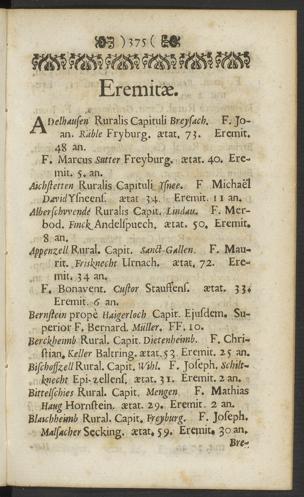 ) 375 (
Eremitæ.
ADelhausen Ruralis Capituli Breysach. F. Jo-
an. Räble Fryburg. ætat. 73. Eremit.
48 an.
F. Marcus Sutter Freyburg. ætat. 40. Ere-
mit. 5. an.
Aichstetten Ruralis Capituli Ysnee. F Michaël
David Ysneens. ætat 34. Eremit. 11 an.
Alberschvvende Ruralis Capit. Lindau. F. Mer-
bod. Finck Andelspuech. ætat. 50. Eremit.
8 an.
Appenzell Rural. Capit. Sanct-Gallen. F. Mau-
rit. Frisknecht Urnach. ætat. 72. Ere-
mit. 34 an.
F. Bonavent. Custor Stauffens. ætat. 33.
Eremit. 6 an.
Bernstein propè Haigerloch Capit. Ejusdem. Su-
perior F. Bernard. Müller. FF. 10.
Berckheimb Rural. Capit. Dietenheimb. F. Chri-
stian. Keller Baltring. ætat. 53. Eremit. 25 an.
Bischoffzell Rural. Capit. Wihl. F. Joseph. Schilt-
knecht Epi-zellens. ætat. 31. Eremit. 2 an.
Bittelschies Rural. Capit. Mengen F. Mathias
Haug Hornstein. ætat. 29. Eremit. 2 an.
Blaichheimb Rural. Capit. Freyburg. F. Joseph.
Malsacher Secking. ætat. 59. Eremit. 30 an.
Bre-